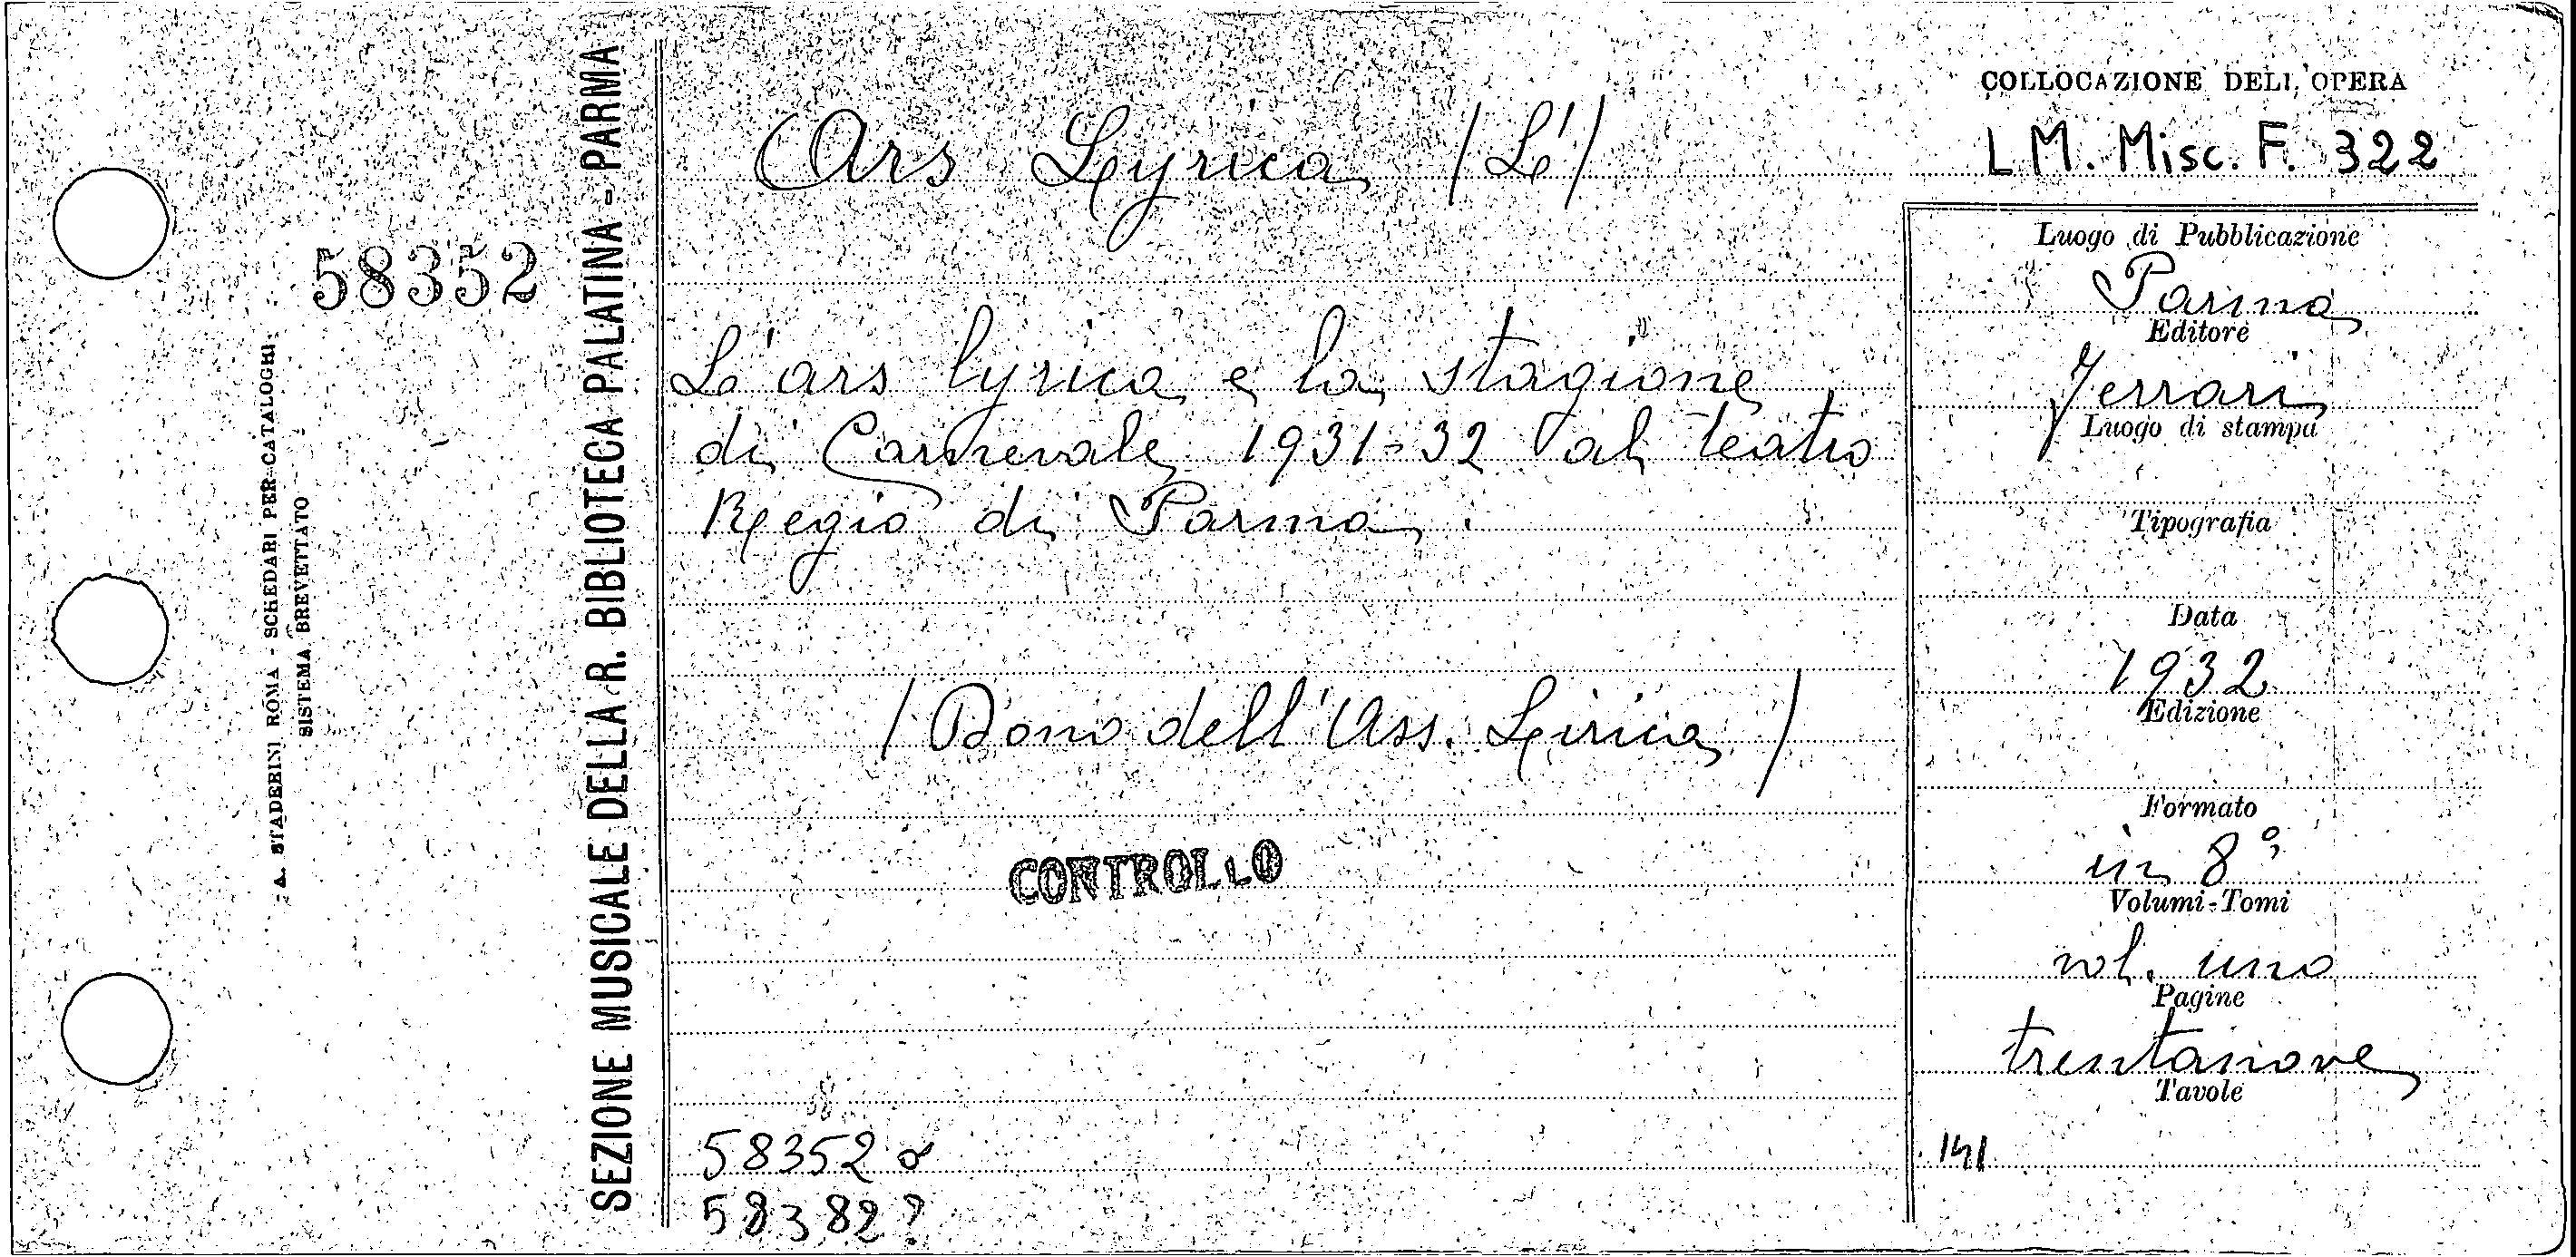 58352
A. STADERINI ROMA - SCHEDARI PER CATALOGHI
SISTEMA BREVETTATO
SEZIONE MUSICALE DELLA R. BIBLIOTECA PALATINA - PARMA
Ars Lyrica /L'/
L'ars lyrica e la stagione
di Carnevale 1931-32 al teatro
Regio di Parma.
/Dono dell'Ass. Lirica/
CONTROLLO
58352 o
58382?
COLLOCAZIONE DELL'OPERA
LM. Misc. F. 322
Luogo di Pubblicazione
Parma
Editore
Ferrari
Luogo di stampa
Tipografia
Data
1932
Edizione
Formato
in 8°
Volumi-Tomi
vol. uno
Pagine
trentanove
Tavole